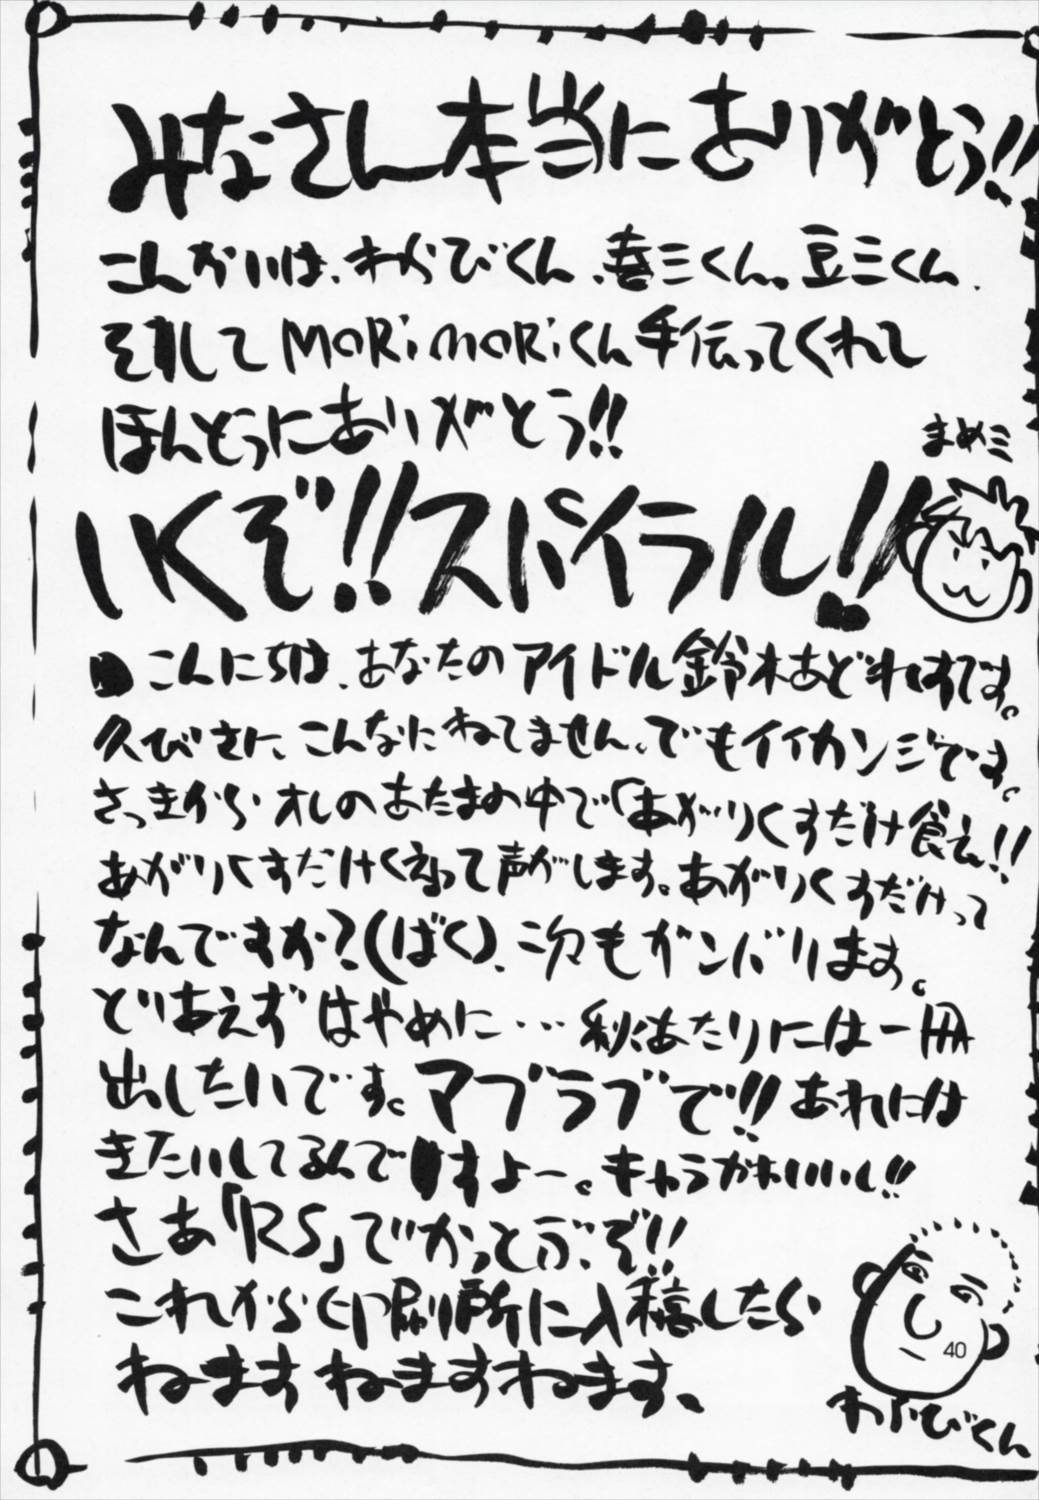 みなさん本当にありがとう!!
こんかいは、わらびくん、喜三くん。豆三くん、
そして MORiMORiくん手伝ってくれて
ほんとうにありがとう!!
まめミ
いくぞ!!スパイラル!!
こんにちは、あなたのアイドル鈴木あどれすです。
久びさに、こんなにねてません、でもイイカンジです。
さっきから オレのあたまの中で「あがりくすだけ食え!!
あがりくすだけくえって声がします。あがりくすだけって
なんですか?(ばく)、次もガンバリます。
とりあえずはやめに… 秋あたりには一冊
出したいです。マブラブで!!あれには
きたいしてるんですよー。キャラかわいいし!!
さあ「RS」でかっとぶぞ!!
これから印刷所に入稿したら
ねますねますねます、
40
わらびくん